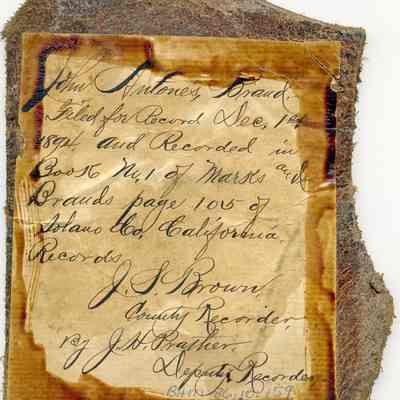 John Antones, Brand
Filed for Record Dec, 1st
1894, and Recorded in
Book No, 1 of Marks and
Brands page 105 of
Solano Co, California
Records,
J. S. Brown,
County Recorder,
By J. H. Prather.
Deputy Recorder